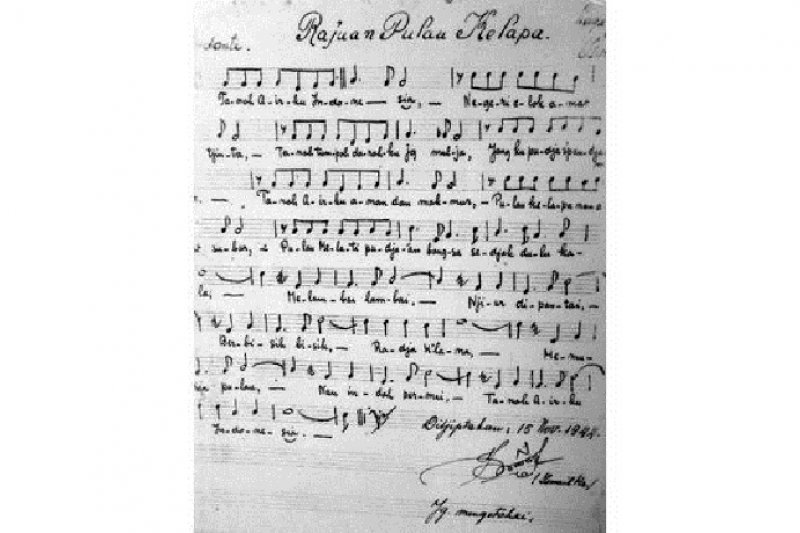 Rajuan Pulau Kelapa.
Ta-nah A-ir-ku In-do-ne — sia, — Ne-ge-ri e-lok a-mat
tjin-ta, — Ta-nah tum-pah da-rah-ku jg mul-ja, Jang ku pu-dja s'pan-djang
Ta-nah A-ir-ku a-man dan mak-mur, — Pu-lau ke-la-pa nan a
su-bur, — Pu-lau Me-la-ti pu-dja-an bang-sa se-djak du-lu ka-
la, — Me-lam-bai lam-bai, — Nji-ur di pan-tai, —
Ber-bi-sik bi-sik, — Ra-dja K'la-na, — Me-mu-
dja pu-lau, — Nan in-dah per-mai, — Ta-nah A-ir-ku
In-do-ne-sia. —
Ditjiptakan, 15 Nov. 1944.
Jg. mengetahui,